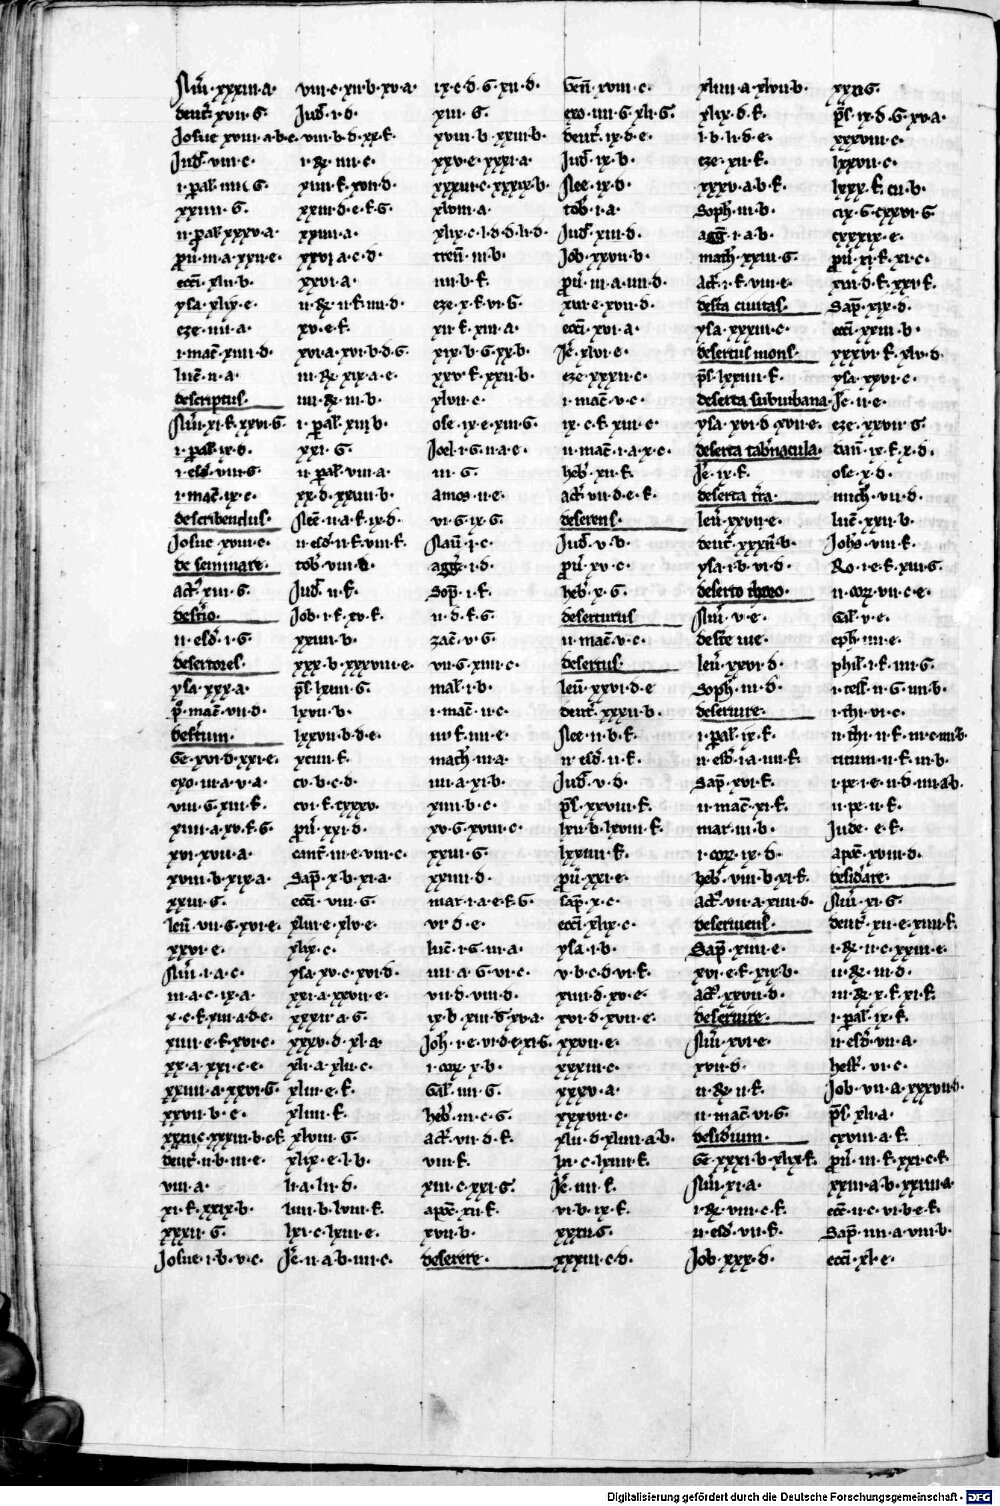 Nuͫ·xxxiii·a·
deut͛·xvii·G·
Josue xviii·a·b·e·
Jud͛·viii·c·
i·ꝑal·iiii·G·
xxiiii·G·
ii·ꝑal·xxxv·a·
ꝓu͛·iii·a·xxii·e·
ecci·xlii·b·
ysa·xlix·e·
eze·iiii·a·
i·mac̄·xiiii·d·
luc̄·ii·a·
descriptus·
Nuͫ·xi·f·xxvi·G·
i·ꝑal·ix·d·
i·esd͛·viii·G·
i·mac̄·ix·c·
describendus·
Josue xviii·c·
de seminare·
act͛·xiii·G·
deſtio·
ii·esd͛·i·G·
desertores·
ysa·xxx·a·
pͦ·mac̄·vii·d·
deſtum·
Ge·xvi·d·xxi·e·
exo·iii·a·v·a·
viii·G·xiii·f·
xiiii·a·xv·f·G·
xvi·xvii·a·
xviii·b·xix·a·
xxiii·G·
leu͛·vii·G·xvi·e·
xxvi·e·
Nuͫ·i·a·c·
iii·a·c·ix·a·
x·c·f·xiii·a·d·e·
xiiii·e·f·xvi·c·
xx·a·xxi·c·e·
xxiiii·a·xxvi·G·
xxvii·b·e·
xxxii·c·xxxiii·b·c·f·
deut͛·ii·b·iii·e·
viii·a·
xi·f·xxix·b·
xxxii·G·
Josue·i·b·v·c·
viii·c·xii·b·xv·a·
Jud͛·i·d·
viii·b·d·xx·f·
i·R·iiii·c·
xiiii·f·xvii·d·
xxiii·d·e·f·G·
xxiiii·a·
xxvi·a·c·d·
xxvi·a·
ii·R·ii·f·iiii·d·
xv·e·f·
xvi·a·xvi·b·d·G·
iii·R·xix·a·e·
iiii·R·iii·b·
i·ꝑal·xii·b·
xxi·G·
ii·ꝑal·viii·a·
xx·d·xxiiii·b·
Nee·ii·a·f·ix·d·
ii·esd͛·ii·f·viii·f·
tob͛·viii·a·
Jud͛·ii·f·
Job·i·f·xv·f·
xxiiii·b·
xxx·b·xxxviii·e·
ps·lxiii·G·
lxvii·b·
lxxvii·b·d·e·
xciii·f·
cv·b·c·d·
cvi·f·cxxxv·
ꝓu͛·xxi·d·
cant͛·iii·e·viii·c·
Sap·x·b·xi·a·
ecci·viii·G·
xliii·e·xlv·e·
xlix·c·
ysa·xv·c·xvi·d·
xxi·a·xxvii·e·
xxxii·a·G·
xxxv·d·xl·a·
xli·a·xlii·c·
xliii·e·f·
xliiii·f·
xlviii·G·
xlix·e·l·b·
li·a·lii·d·
liiii·b·lviii·f·
lxi·c·lxiii·e·
Je͛·ii·a·b·iiii·c·
ix·c·d·G·xii·d·
xiii·G·
xviii·b·xxiii·b·
xxv·e·xxxi·a·
xxxiii·c·xxxix·b·
xlviii·a·
xlix·c·l·d·d·li·d·
tren·iii·b·
iiii·b·f·
eze·x·f·vi·G·
xii·f·xiii·a·
xix·b·G·xx·b·
xxv·f·xxii·b·
xlvii·c·
ose·ix·e·xiii·G·
Joel·i·G·ii·a·e·
iii·G·
amos·ii·e·
vi·G·ix·G·
Nau͛·i·c·
agg͛·i·d·
Sop·i·f·
ii·d·f·G·
zac̄·v·G·
vii·G·xiiii·c·
mal·i·b·
i·mac·ii·c·
iii·f·iiii·e·
math·iii·a·
iiii·a·xi·b·
xiiii·b·c·
xv·G·xviii·c·
xxiii·G·
xxiiii·d·
mar·i·a·e·f·G·
vi·d·e·
luc̄·i·G·iii·a·
iiii·a·G·vi·c·
vii·d·viii·d·
ix·b·xiii·G·xv·a·
Joh·i·e·vi·d·e·xi·G·
i·cor·x·b·
Gal·iiii·G·
heb͛·iii·c·G·
act͛·vii·d·f·
viii·f·
xiii·c·xxi·G·
apoc̄·xii·f·
xvii·b·
deserere·
Gen̄·xviii·c·
exo·iiii·G·xli·G·
deut͛·ix·d·e·
Jud͛·ix·b·
Nee·ix·d·
tob͛·i·a·
Jud͛·xiii·d·
Job·xxvii·b·
ꝓu͛·iii·a·iiii·d·
xvi·e·xvii·d·
ecci·xvi·a·
Je͛·xlvi·e·
eze·xxxii·c·
i·mac̄·v·c·
ix·c·f·xiii·e·
ii·mac̄·i·a·x·e·
heb͛·xii·f·
act͛·vii·d·e·f·
deserens·
Jud͛·v·b·
ꝓu͛·xv·c·
heb͛·x·G·
deserturus
ii·mac̄·v·c·
desertus·
leu͛·xxvi·d·e
deut͛·xxxii·b·
Nee·ii·b·f·
ii·esd͛·ii·f·
Jud͛·v·d·
ps·xxviii·f·
lxii·b·lxviii·f·
lxxiiii·f·
ꝓu͛·xxi·e·
sap·x·c·
ecci·xlix·c·
ysa·i·b·
v·b·c·d·vi·f·
xiiii·d·xv·e·
xvi·d·xvii·e·
xxvii·e·
xxxiii·c·
xxxv·a·
xxxvii·c·
xlii·d·xliiii·a·b·
lii·c·lxiiii·f·
Je͛·iiii·f·
vi·b·ix·f·
xxxii·G·
xxxiii·c·d·
xliiii·a·xlvii·b·
xlix·d·f·
i·b·li·d·e·
eze·xii·f·
xxxv·a·b·f·
Soph·iii·b·
agg͛·i·a·b·
math·xxiii·G·
act͛·i·f·viii·e·
deſta ciuitas·
ysa·xxxiii·c·
desertus mons·
ps·lxxiiii·f·
deserta suburbana·
ysa·xvi·d·xvii·e·
deserta tab͛nacula·
Je͛·ix·f·
deserta t͛ra·
leu͛·xxvii·e·
deut͛·xxxii·b·
ysa·i·b·vi·d·
deserto
Nuͫ·v·e·
deſte uie·
leu͛·xxvi·d·
Soph·iii·d·
deseruire·
i·ꝑal·ix·f·
ii·esd͛·i·a·iiii·f·
Sap·xvi·f·
ii·mac̄·xi·f·
mar·iii·b·
i·cor·ix·d·
heb͛·viii·b·xi·f·
act͛·vii·a·xiiii·d·
deseruiens·
Sap·xiiii·e·
xvi·e·f·xix·b·
act͛·xxvii·d·
deseruire·
Nuͫ·xvi·e·
xvii·d·
ii·R·ii·f·
ii·mac̄·vi·G·
desidium·
Ge·xxxi·b·xlix·f·
Nuͫ·xi·a·
i·R·viii·c·f·
ii·esd͛·vii·f·
Job·xxx·d·
xxxi·G·
ps·ix·d·G·xv·a·
xxxviii·c·
lxxvii·c·
lxxx·f·cii·b·
cix·G·cxxvi·G·
cxxxix·e·
ꝓu͛·xi·f·xi·c·
xiii·d·f·xxi·f·
Sap·xix·d·
ecci·xxiii·b·
xxxvi·f·xlv·d·
ysa·xxvi·c·
Je·ii·e·
eze·xxvii·G·
dan̄·ix·f·x·d·
ose·x·d·
mich·vii·d·
luc̄·xxii·b·
Joho·viii·f·
Ro·i·e·f·xiii·G·
ii·cor·vii·c·e·
Gal·v·e·
eph·iiii·e·
phil·i·f·iiii·G·
i·tess·ii·G·iii·b·
i·thi·vi·c·
ii·thi·ii·f·iii·c·iiii·b·
titum·ii·f·iii·b·
i·pe·i·e·ii·d·iiii·a·b·
ii·pe·ii·f·
Jude·e·f·
apoc̄·xviii·d·
desidare·
Nuͫ·xi·G·
deut͛·xii·e·xiiii·f·
i·R·ii·c·xxiii·e·
ii·R·iii·d·
iii·R·x·f·xi·f·
i·ꝑal·ix·f·
ii·esd͛·vii·a·
hest͛·vi·c·
Job·vii·a·xxxvi·b·
ps·xli·a·
cxviii·a·f·
ꝓu͛·iii·f·xxi·c·f·
xxiii·a·b·xxiiii·a·
ecc̄·ii·c·vi·b·e·f·
Sap·iiii·a·viii·b·
ecci·xl·e·
Digitalisierung gefördert durch die Deutsche Forschungsgemeinschaft - DFG